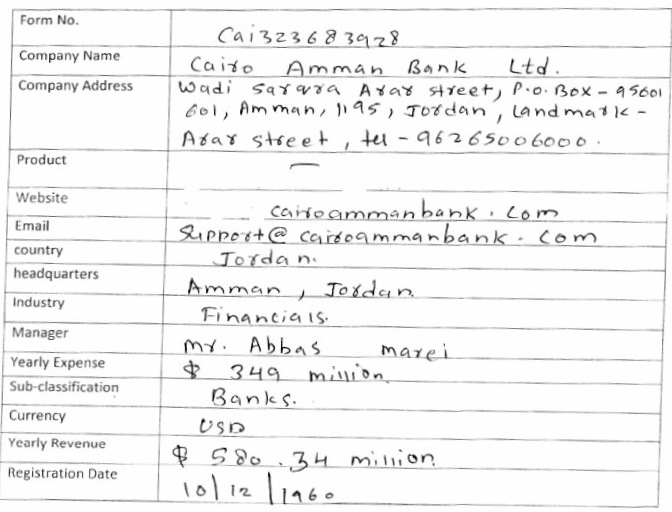 Form No. Cai323683928
Company Name Cairo Amman Bank Ltd.
Company Address Wadi Sarara Arar street, P.O.Box - 95601
601, Amman, 1195, Jordan, Landmark -
Arar street, tel - 96265006000.
Product —
Website cairoammanbank.com
Email Support@cairoammanbank.com
country Jordan.
headquarters Amman, Jordan
Industry Financials.
Manager mr. Abbas marei
Yearly Expense $ 349 million.
Sub-classification Banks.
Currency USD
Yearly Revenue $ 580.34 million.
Registration Date 10/12/1960